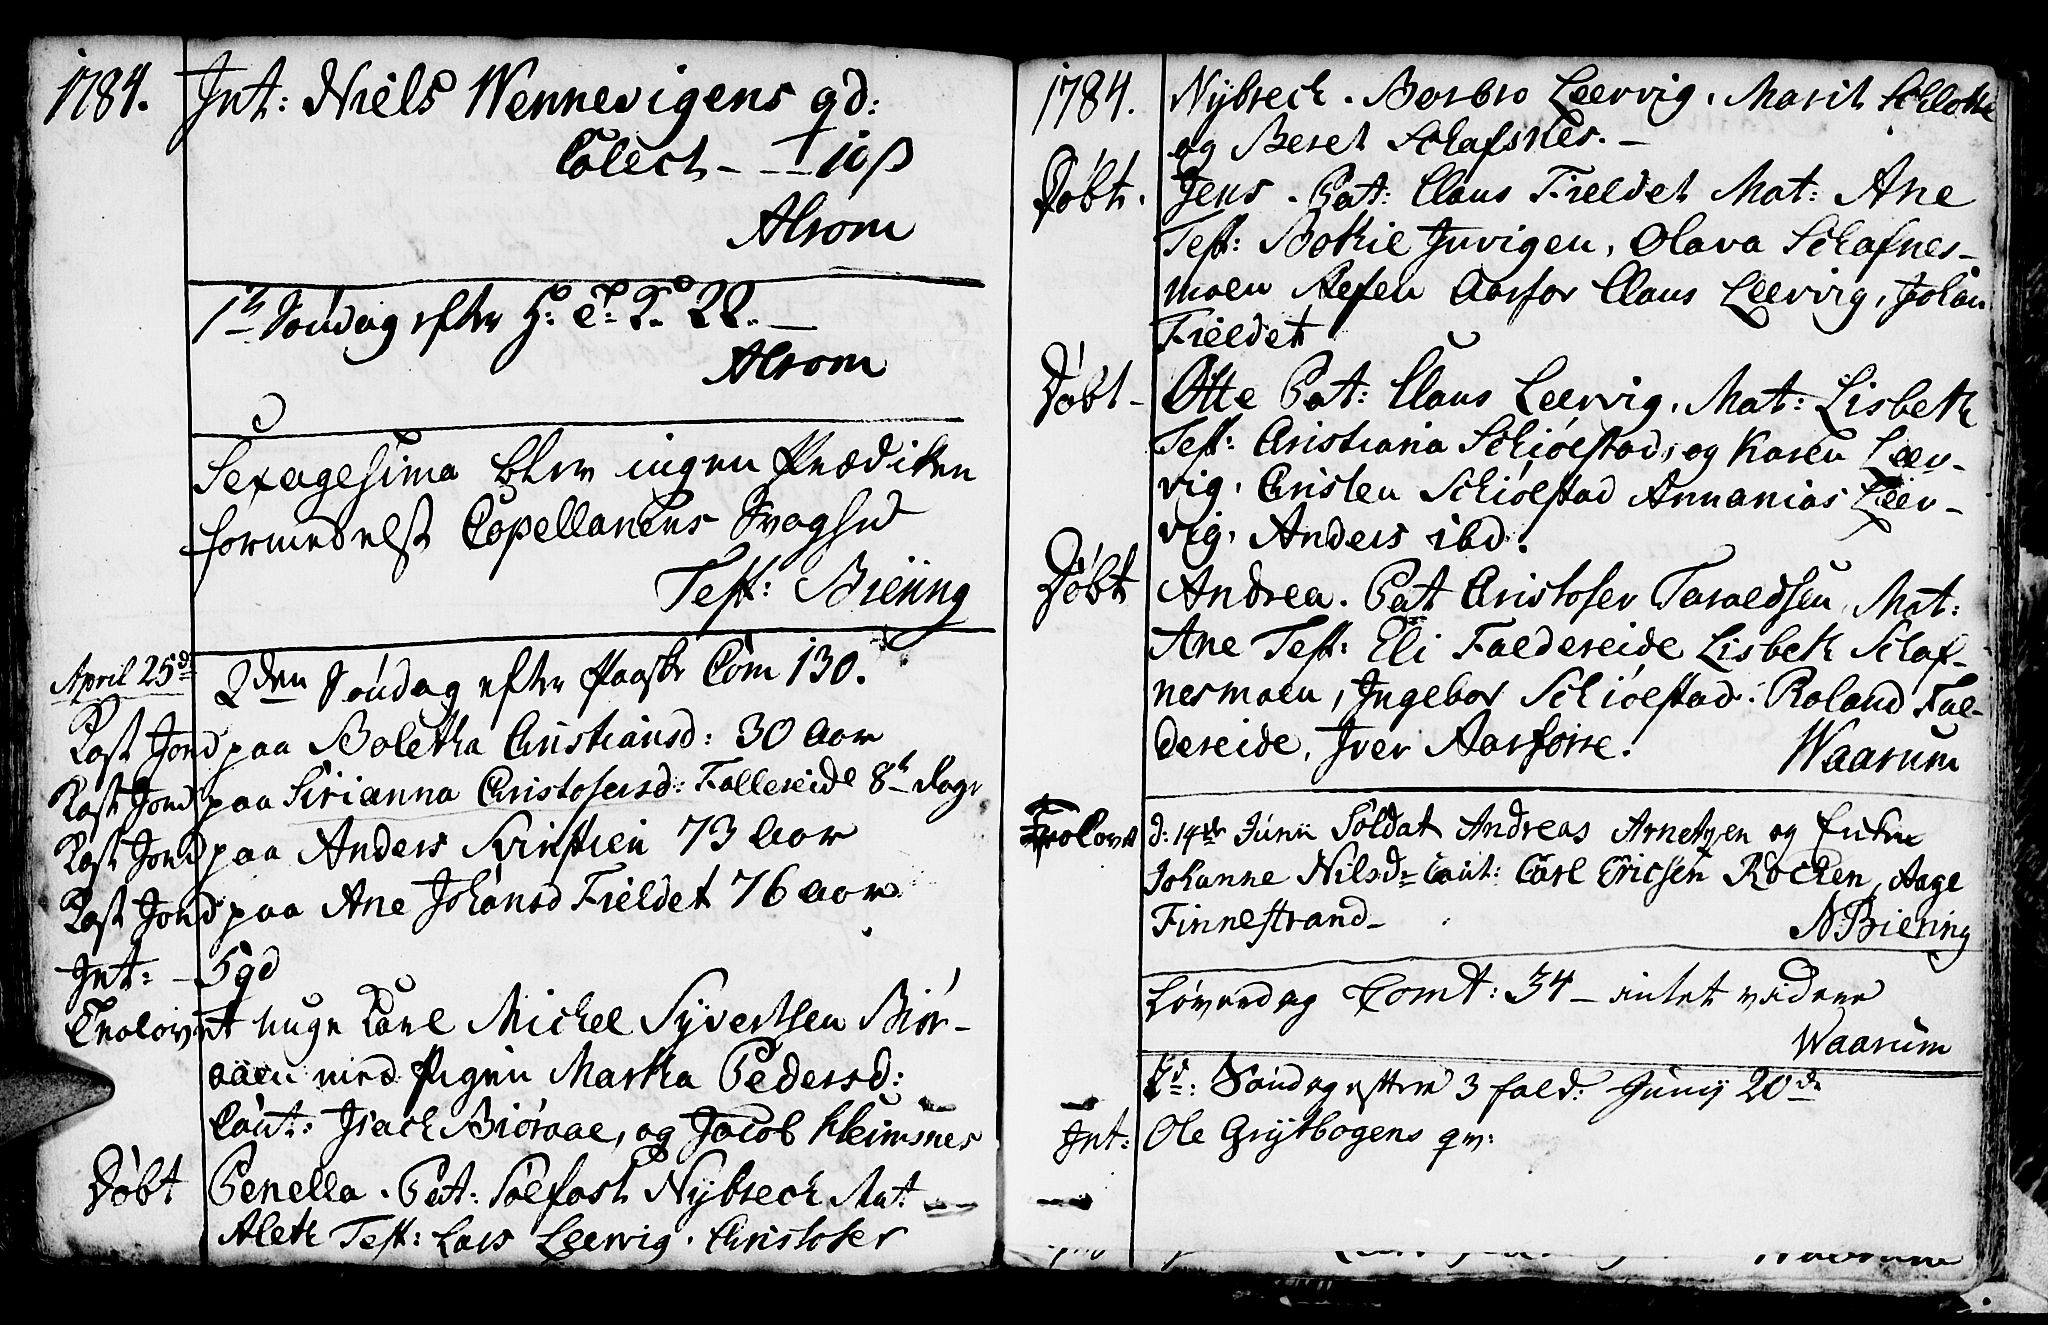 1784. Int: Niels Wennevigens qd:
Colect - - - 10 ß
Alrom
1ste Søndag efter H: 3: K: 22. -
Alrom
Sexagesima blev ingen Prædiken
formedelst Capellanens Svaghed
Test: Biering
April 25d 2den Søndag efter Paaske Com 130.
Kast Jord paa Boletha Christiansd: 30 Aar
Kast Jord paa Sirianna Christofersd: Fallereide 8te Dage
Kast Jord paa Anders 73 Aar
Kast Jord paa Ane Johansd Fieldet 76 aar
Int: - 5 qd
Trolovet unge Karl Michel Syvertsen Biør-
aaen med Pigen Martha Pedersd:
Caut: Isach Biøraae, og Jacob Kleimsnes
Døbt Penella. Pat: Solfast Nybrech Mat:
Aleth Test: Lars Leervig. Christofer
1784. Nybrech. Barbro Leervig. Marit
og Beret Schafsnes. -
Døbt. Jens. Pat: Claus Fieldet Mat: Ane
Test: Bothie Juvigen, Olava Schafnes-
moen Aarfor Claus Leervig, Johan
Fieldet
Døbt - Otte Pat: Claus Leervig. Mat: Lisbeth
Test: Christiana Schiølstad, og Karen Leer-
vig. Christen Schiølstad Annanias Leer-
vig. Anders ibd:
Døbt Andrea. Pat Christofer Taraldsen, Mat:
Ane Test: Eli Faldereide Lisbeth Schaf-
nesmoen, Ingebor Schiølstad. Roland Fal-
dereide, Iver Aarforre.
Waarum
Trolovet d: 14de Junii Soldat Andreas Arnetzen og Enken
Johanne Nilsd= Caut: Carl Ericsen Kochen, Aage
Finnestrand -
N: Biering
Løverdag Comt: 34 - intet videre
Waarum
2d: Søndag efter 3 fold: Junij 20de
Int: Ole Grytbogens qv: